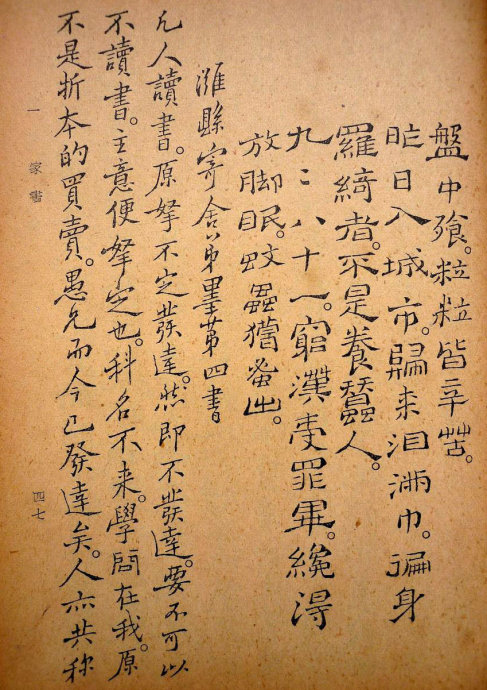 盤中飱。粒粒皆辛苦。
昨日入城市。歸来泪滿巾。徧身
羅綺者。不是養蠶人。
九九八十一。窮漢受罪畢。纔淂
放脚眠。蚊蟲獦蚤出。
濰縣寄舍弟墨第四書
凡人讀書。原拏不定發達。然即不發達。要不可以
不讀書。主意便拏定也。科名不来。學問在我。原
不是折本的買賣。愚兄而今已發達矣。人亦共称
一
家書
四七